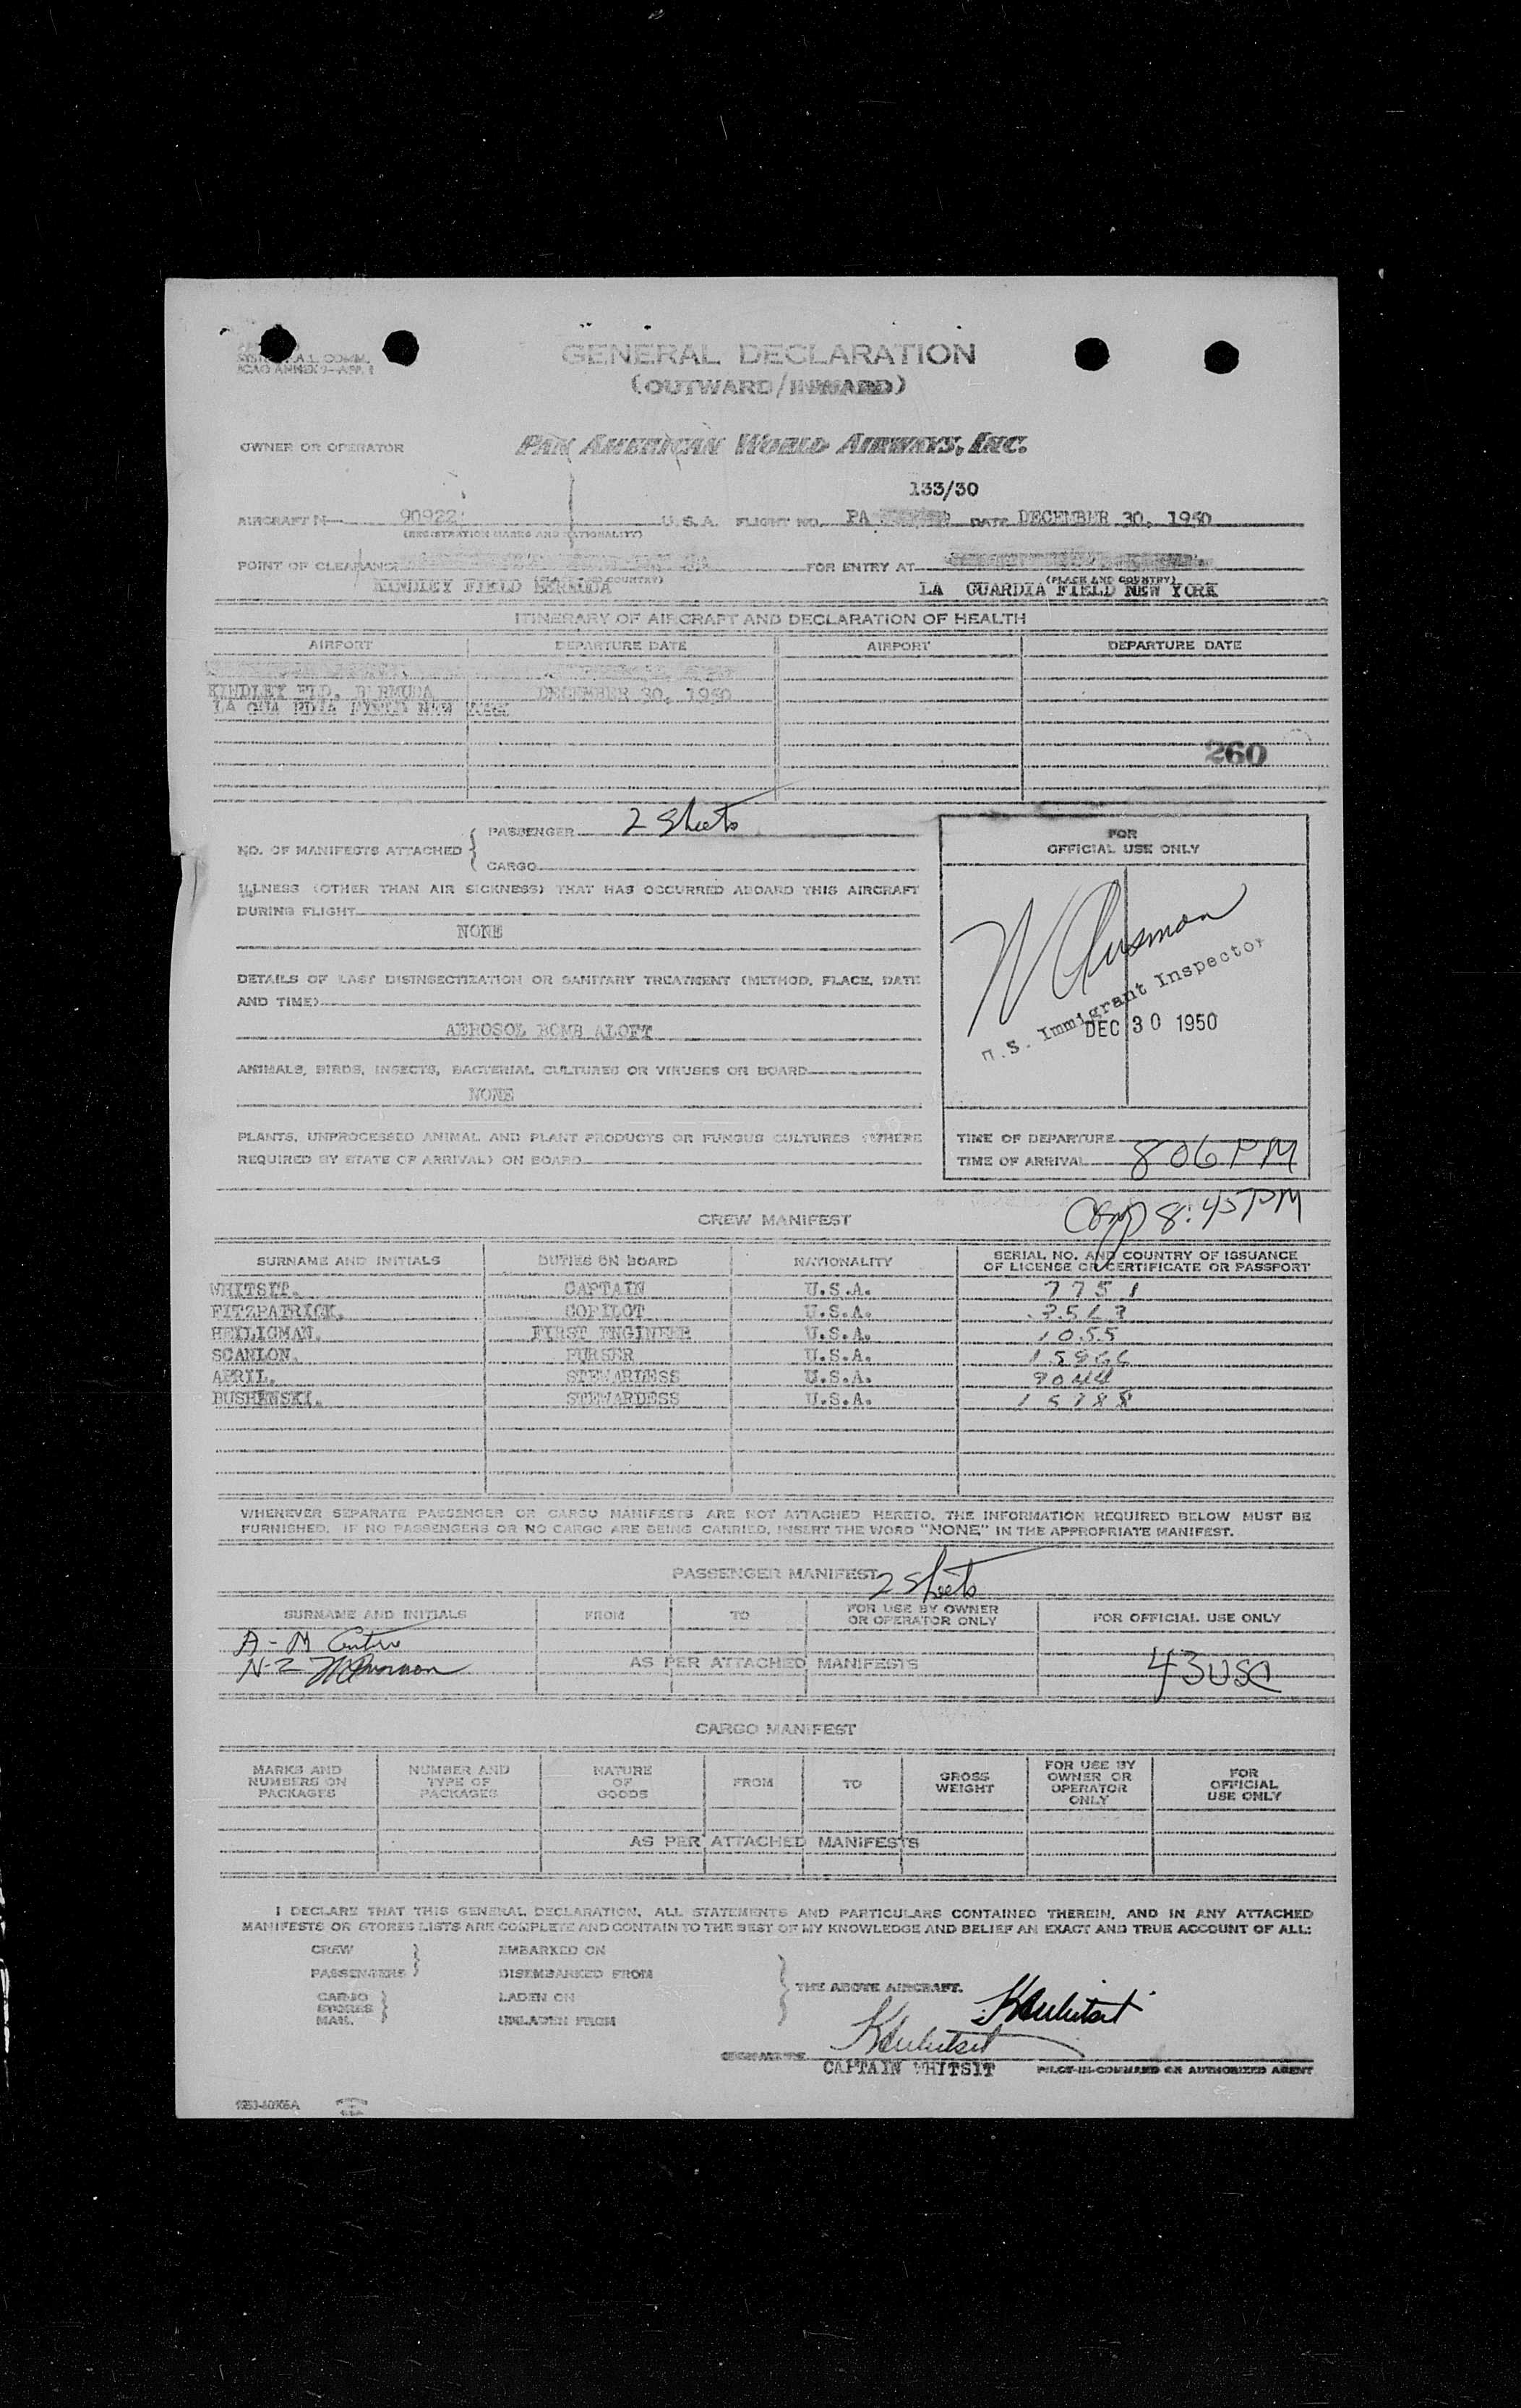 A.L. COMM.
ICAO ANNEX 9—APP. 1
GENERAL DECLARATION
(OUTWARD/INWARD)
OWNER OR OPERATOR PAN AMERICAN WORLD AIRWAYS, INC.
133/30
AIRCRAFT N— 90922 U.S.A. FLIGHT NO. PA DATE DECEMBER 30, 1950
(REGISTRATION MARKS AND NATIONALITY)
POINT OF CLEARANCE FOR ENTRY AT
(PLACE AND COUNTRY) (PLACE AND COUNTRY)
KINDLEY FIELD BERMUDA LA GUARDIA FIELD NEW YORK
ITINERARY OF AIRCRAFT AND DECLARATION OF HEALTH
AIRPORT DEPARTURE DATE AIRPORT DEPARTURE DATE
KINDLEY FLD, BERMUDA DECEMBER 30, 1950
LA GUA RDIA FIELD NEW YORK
260
NO. OF MANIFESTS ATTACHED { PASSENGER 2 Sheets
CARGO
ILLNESS (OTHER THAN AIR SICKNESS) THAT HAS OCCURRED ABOARD THIS AIRCRAFT
DURING FLIGHT
NONE
DETAILS OF LAST DISINSECTIZATION OR SANITARY TREATMENT (METHOD, PLACE, DATE
AND TIME)
AEROSOL BOMB ALOFT
ANIMALS, BIRDS, INSECTS, BACTERIAL CULTURES OR VIRUSES ON BOARD
NONE
PLANTS, UNPROCESSED ANIMAL AND PLANT PRODUCTS OR FUNGUS CULTURES (WHERE
REQUIRED BY STATE OF ARRIVAL) ON BOARD
FOR
OFFICIAL USE ONLY
U.S. Immigrant Inspector
DEC 30 1950
TIME OF DEPARTURE
TIME OF ARRIVAL 8 06 PM
8:45 PM
CREW MANIFEST
SURNAME AND INITIALS DUTIES ON BOARD NATIONALITY SERIAL NO. AND COUNTRY OF ISSUANCE
OF LICENSE OR CERTIFICATE OR PASSPORT
WHITSIT. CAPTAIN U.S.A. 7751
FITZPATRICK. COPILOT U.S.A.
HEILIGMAN. FIRST ENGINEER U.S.A. 1055
SCANLON. PURSER U.S.A. 15966
APRIL. STEWARDESS U.S.A. 9044
BUSHENSKI. STEWARDESS U.S.A.
WHENEVER SEPARATE PASSENGER OR CARGO MANIFESTS ARE NOT ATTACHED HERETO, THE INFORMATION REQUIRED BELOW MUST BE
FURNISHED. IF NO PASSENGERS OR NO CARGO ARE BEING CARRIED, INSERT THE WORD "NONE" IN THE APPROPRIATE MANIFEST.
PASSENGER MANIFEST 2 Sheets
SURNAME AND INITIALS FROM TO FOR USE BY OWNER
OR OPERATOR ONLY FOR OFFICIAL USE ONLY
A - M
N-Z
AS PER ATTACHED MANIFESTS 43 USC
CARGO MANIFEST
MARKS AND
NUMBERS ON
PACKAGES
NUMBER AND
TYPE OF
PACKAGES
NATURE
OF
GOODS
FROM
TO
GROSS
WEIGHT
FOR USE BY
OWNER OR
OPERATOR
ONLY
FOR
OFFICIAL
USE ONLY
AS PER ATTACHED MANIFESTS
I DECLARE THAT THIS GENERAL DECLARATION, ALL STATEMENTS AND PARTICULARS CONTAINED THEREIN, AND IN ANY ATTACHED
MANIFESTS OR STORES LISTS ARE COMPLETE AND CONTAIN TO THE BEST OF MY KNOWLEDGE AND BELIEF AN EXACT AND TRUE ACCOUNT OF ALL:
CREW EMBARKED ON
PASSENGERS DISEMBARKED FROM
THE ABOVE AIRCRAFT.
CARGO LADEN ON
STORES
MAIL UNLADEN FROM
SIGNATURE
CAPTAIN WHITSIT PILOT-IN-COMMAND OR AUTHORIZED AGENT